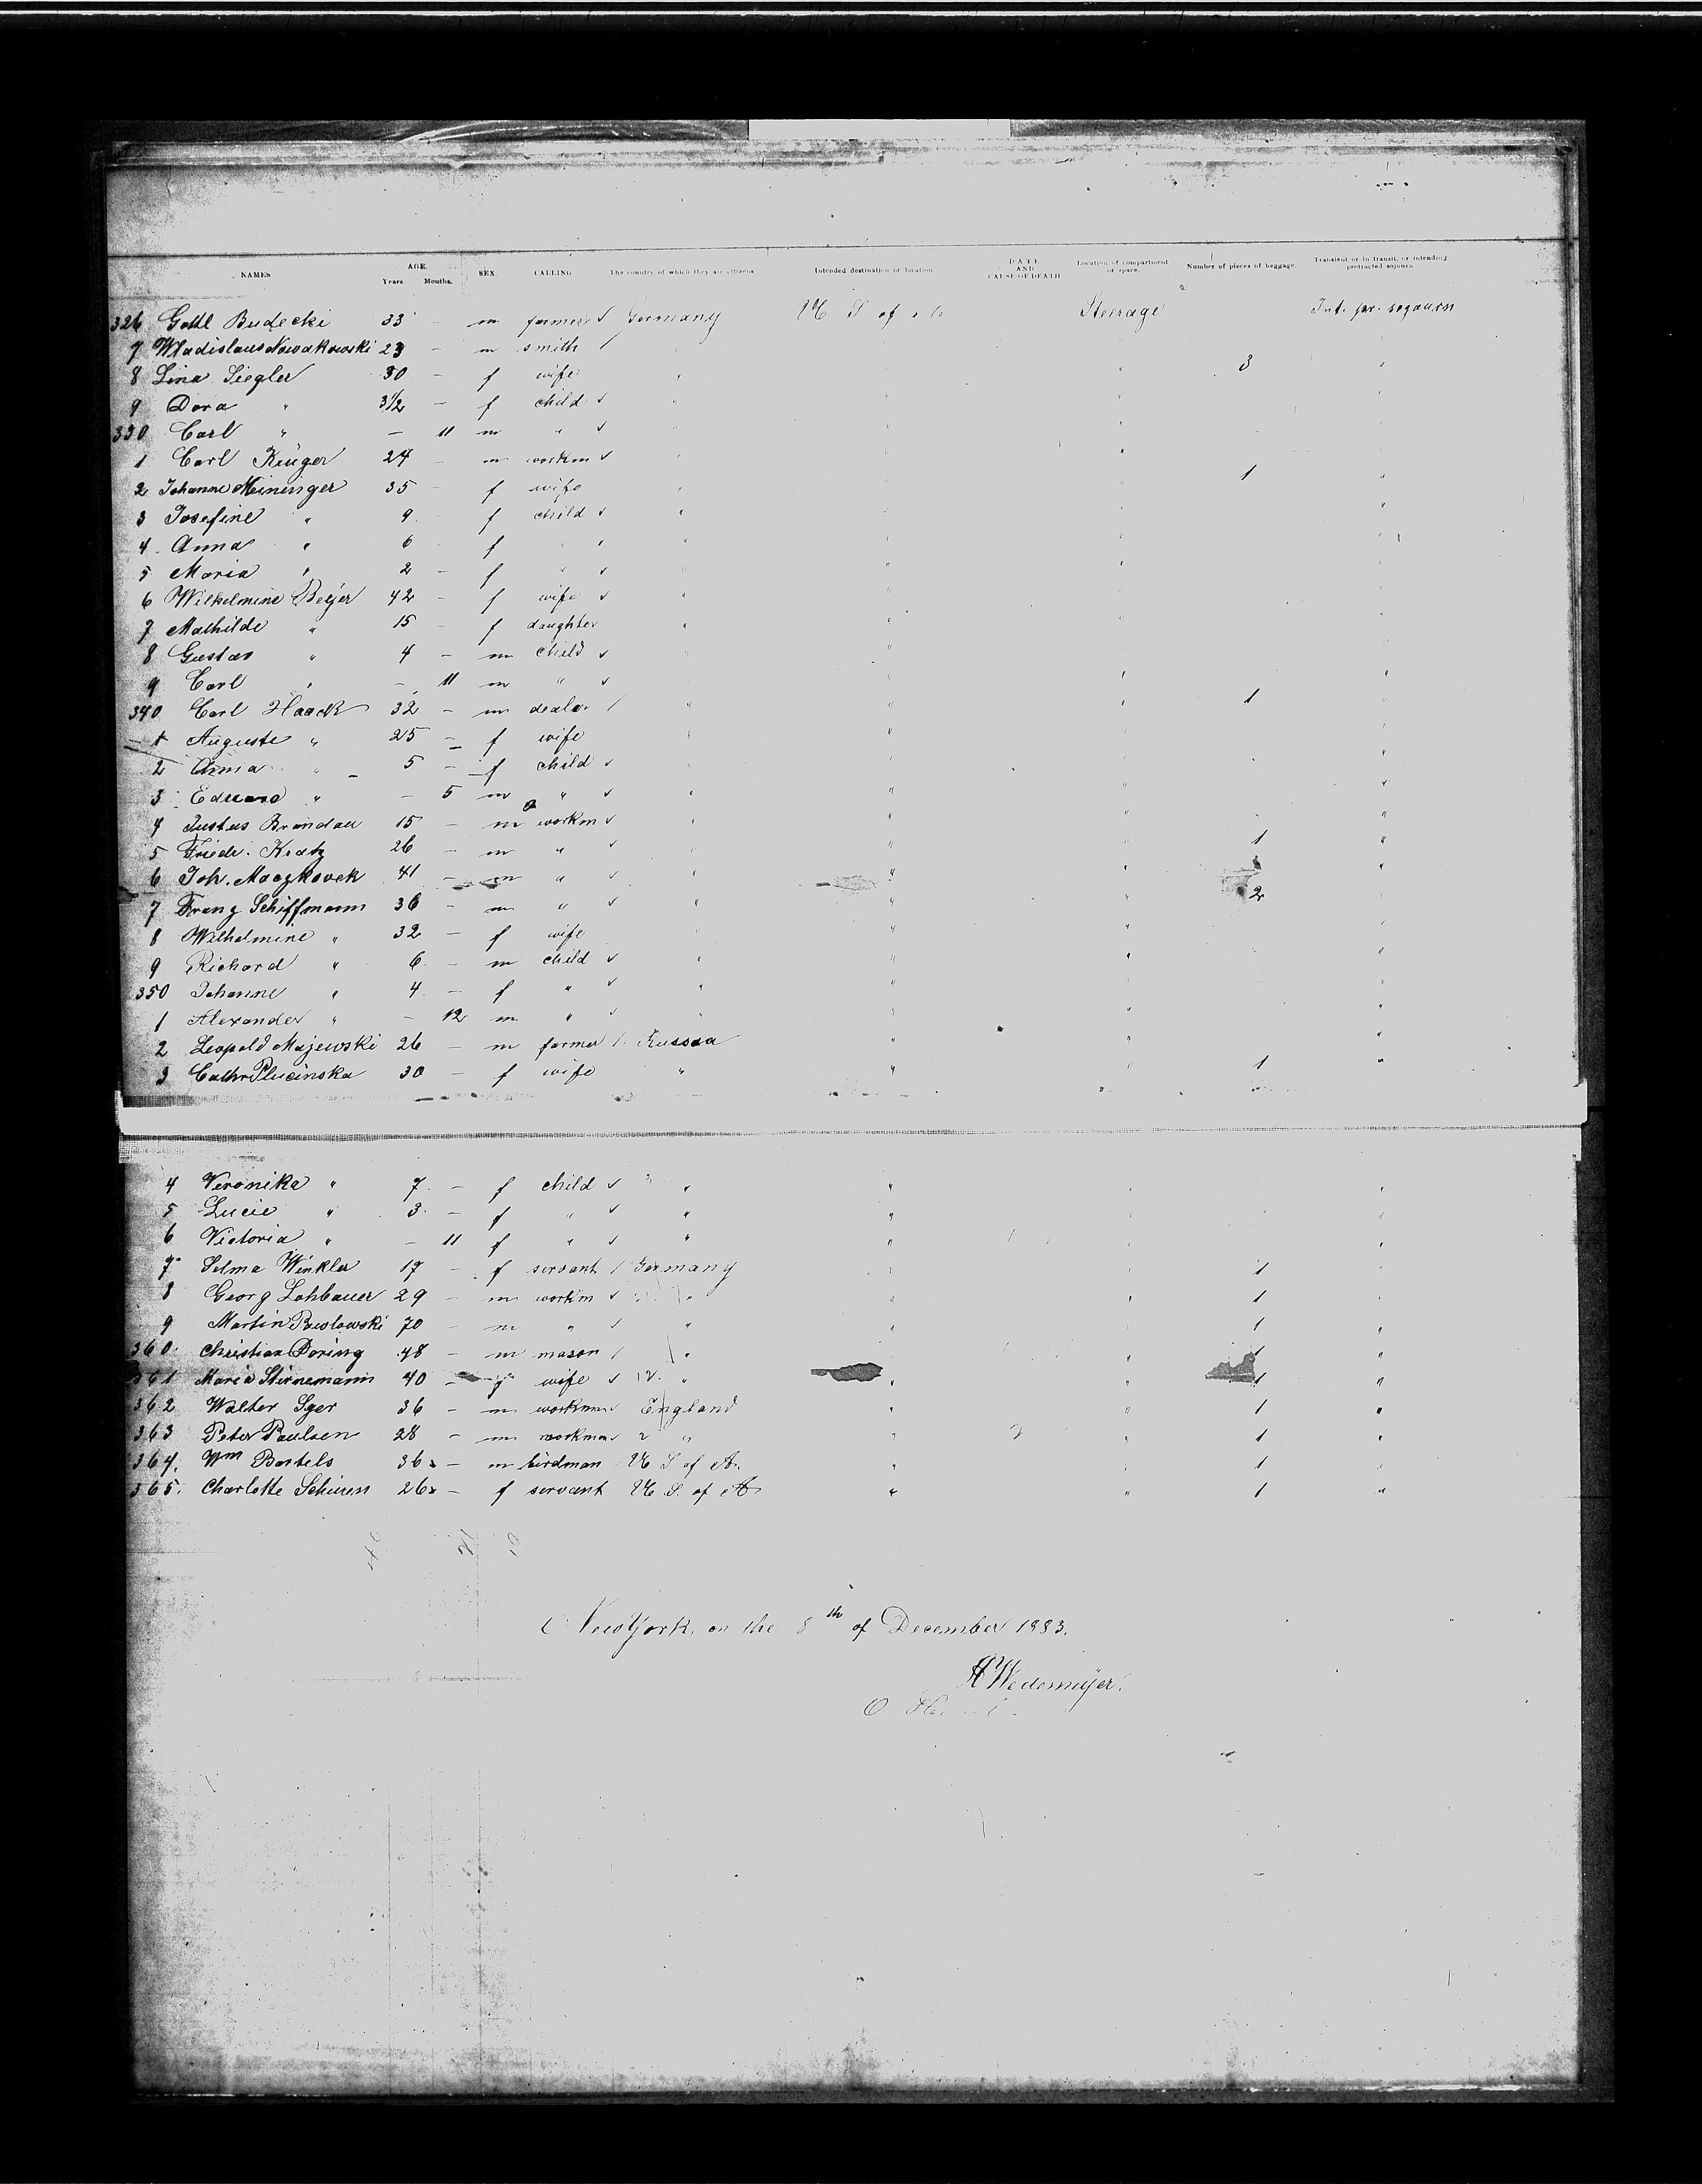 NAMES AGE. Years. Months. SEX. CALLING The country of which they are citizens Intended destination or location DATE AND CAUSE OF DEATH Location of compartment or space. Number of pieces of baggage. Transient or in transit, or intending protracted sojourn
326 Gottl Budecki 33 - m farmer ✓ Germany U S of A Steerage Int. pr. sojourn
7 Wladislaus Nowakowski 23 - m smith / "
8 Lina Siegler 30 - f wife " " " 3 "
9 Dora " 3 1/2 - f child ✓ " " " "
330 Carl " - 11 m " ✓ " " " "
1 Carl Krüger 24 - m workm ✓ " " " "
2 Johanne Meininger 35 - f wife " " " 1 "
3 Josefine " 9 - f child ✓ " " " "
4 Anna " 6 - f " ✓ " " " "
5 Maria " 2 - f " ✓ " " " "
6 Wilhelmine Beyer 42 - f wife ✓ " " " "
7 Mathilde " 15 - f daughter " " " "
8 Gustav " 4 - m child ✓ " " " "
9 Carl " - 11 m " ✓ " " " "
340 Carl Haack 32 - m dealer / " " " 1 "
1 Auguste " 25 - f wife " " " "
2 Anna " 5 - f child ✓ " " " "
3 Eduard " - 5 m " ✓ " " " "
4 Justus Brandau 15 - m workm ✓ " " " "
5 Friedr. Kratz 26 - m " ✓ " " " 1 "
6 Joh. Maczkovek 41 - m " ✓ " " " "
7 Franz Schiffmann 36 - m " ✓ " " " 2 "
8 Wilhelmine " 32 - f wife " " " "
9 Richard " 6 - m child ✓ " " " "
350 Johanne " 4 - f " ✓ " " " "
1 Alexander " - 12 m " ✓ " " " "
2 Leopold Majewski 26 - m farmer / Russia " " "
3 Cathr Plucinska 30 - f wife " " " 1 "
4 Veronika " 7 - f child ✓ " " " "
5 Lucie " 3 - f " ✓ " " " "
6 Victoria " - 11 f " ✓ " " " "
7 Selma Winkler 17 - f servant / Germany " " 1 "
8 Georg Lohbauer 29 - m workm ✓ " " " 1 "
9 Martin 70 - m " ✓ " " " 1 "
360. Christian Doring 48 - m mason / " " " 1 "
361 Maria Stirnemann 40 - f wife ✓ " " " 1 "
362 Walter 36 - m workman England " " 1 "
363 Peter Paulsen 28 - m workman " " " 1 "
364. Wm Bartels 36 - m birdman U S of A. " " 1 "
365. Charlotte 26 - f servant U S. of A " " 1 "
New York, on the 8th of December 1883.
H Wedemeyer.